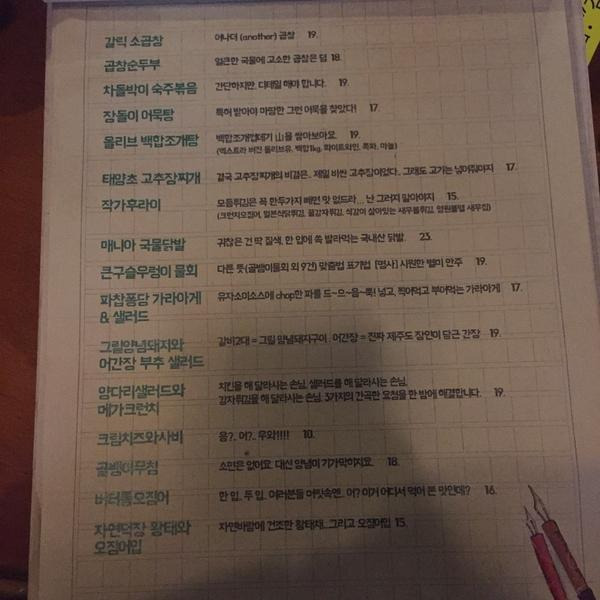 갈릭 소곱창 어나더 (another) 곱창 19.
곱창순두부 얼큰한 국물에 고소한 곱창은 덤 18.
차돌박이 숙주볶음 간단하지만, 디테일 해야 합니다. 19.
장돌이 어묵탕 특허 받아야 마땅한 그런 어묵을 찾았다! 17.
올리브 백합조개탕 백합조개껍데기 山을 쌓아보아요. 19.
(엑스트라 버진 올리브유, 백합1kg, 화이트와인, 쪽파, 마늘)
태양초 고추장찌개 결국 고추장찌개의 비결은.. 제일 비싼 고추장이었다.. 그래도 고기는 넣어줘야지 17.
작가후라이 모듬튀김은 꼭 한두가지 빼면 맛 없드라... 난 그러지 말아야지 15.
(크런치오징어, 일본식닭튀김, 통감자튀김, 식감이 살아있는 새우볼튀김, 앙원불떡 새우칩)
매니아 국물닭발 귀찮은 건 딱 질색. 한 입에 쏙 발라먹는 국내산 닭발. 23.
큰구슬우렁이 물회 다른 뜻(골뱅이물회 외 9건) 맞춤법 표기법 [명사] 시원한 별미 안주 19.
파찹퐁당 가라아게 유자소이소스에 chop한 파를 드~으~음~뿍! 넣고, 찍어먹고 부어먹는 가라아게 17.
& 샐러드
그릴양념돼지와 갈비2대 = 그릴 양념돼지구이 . 어간장 = 진짜 제주도 장인이 담근 간장 19.
어간장 부추 샐러드
양다리샐러드와 치킨을 해 달라시는 손님, 샐러드를 해 달라시는 손님,
메가크런치 감자튀김을 해 달라시는 손님, 3가지의 간곡한 요청을 한 방에 해결합니다. 19.
크림치즈와사비 음?.. 어?.. 우와!!!! 10.
골뱅이무침 소면은 없어요. 대신 양념이 기가막히지요. 18.
버터통오징어 한 입, 두 입.. 여러분들 머릿속엔.. 어? 이거 어디서 먹어 본 맛인데? 16.
자연덕장 황태와 자연바람에 건조한 황태채...그리고 오징어입 15.
오징어입